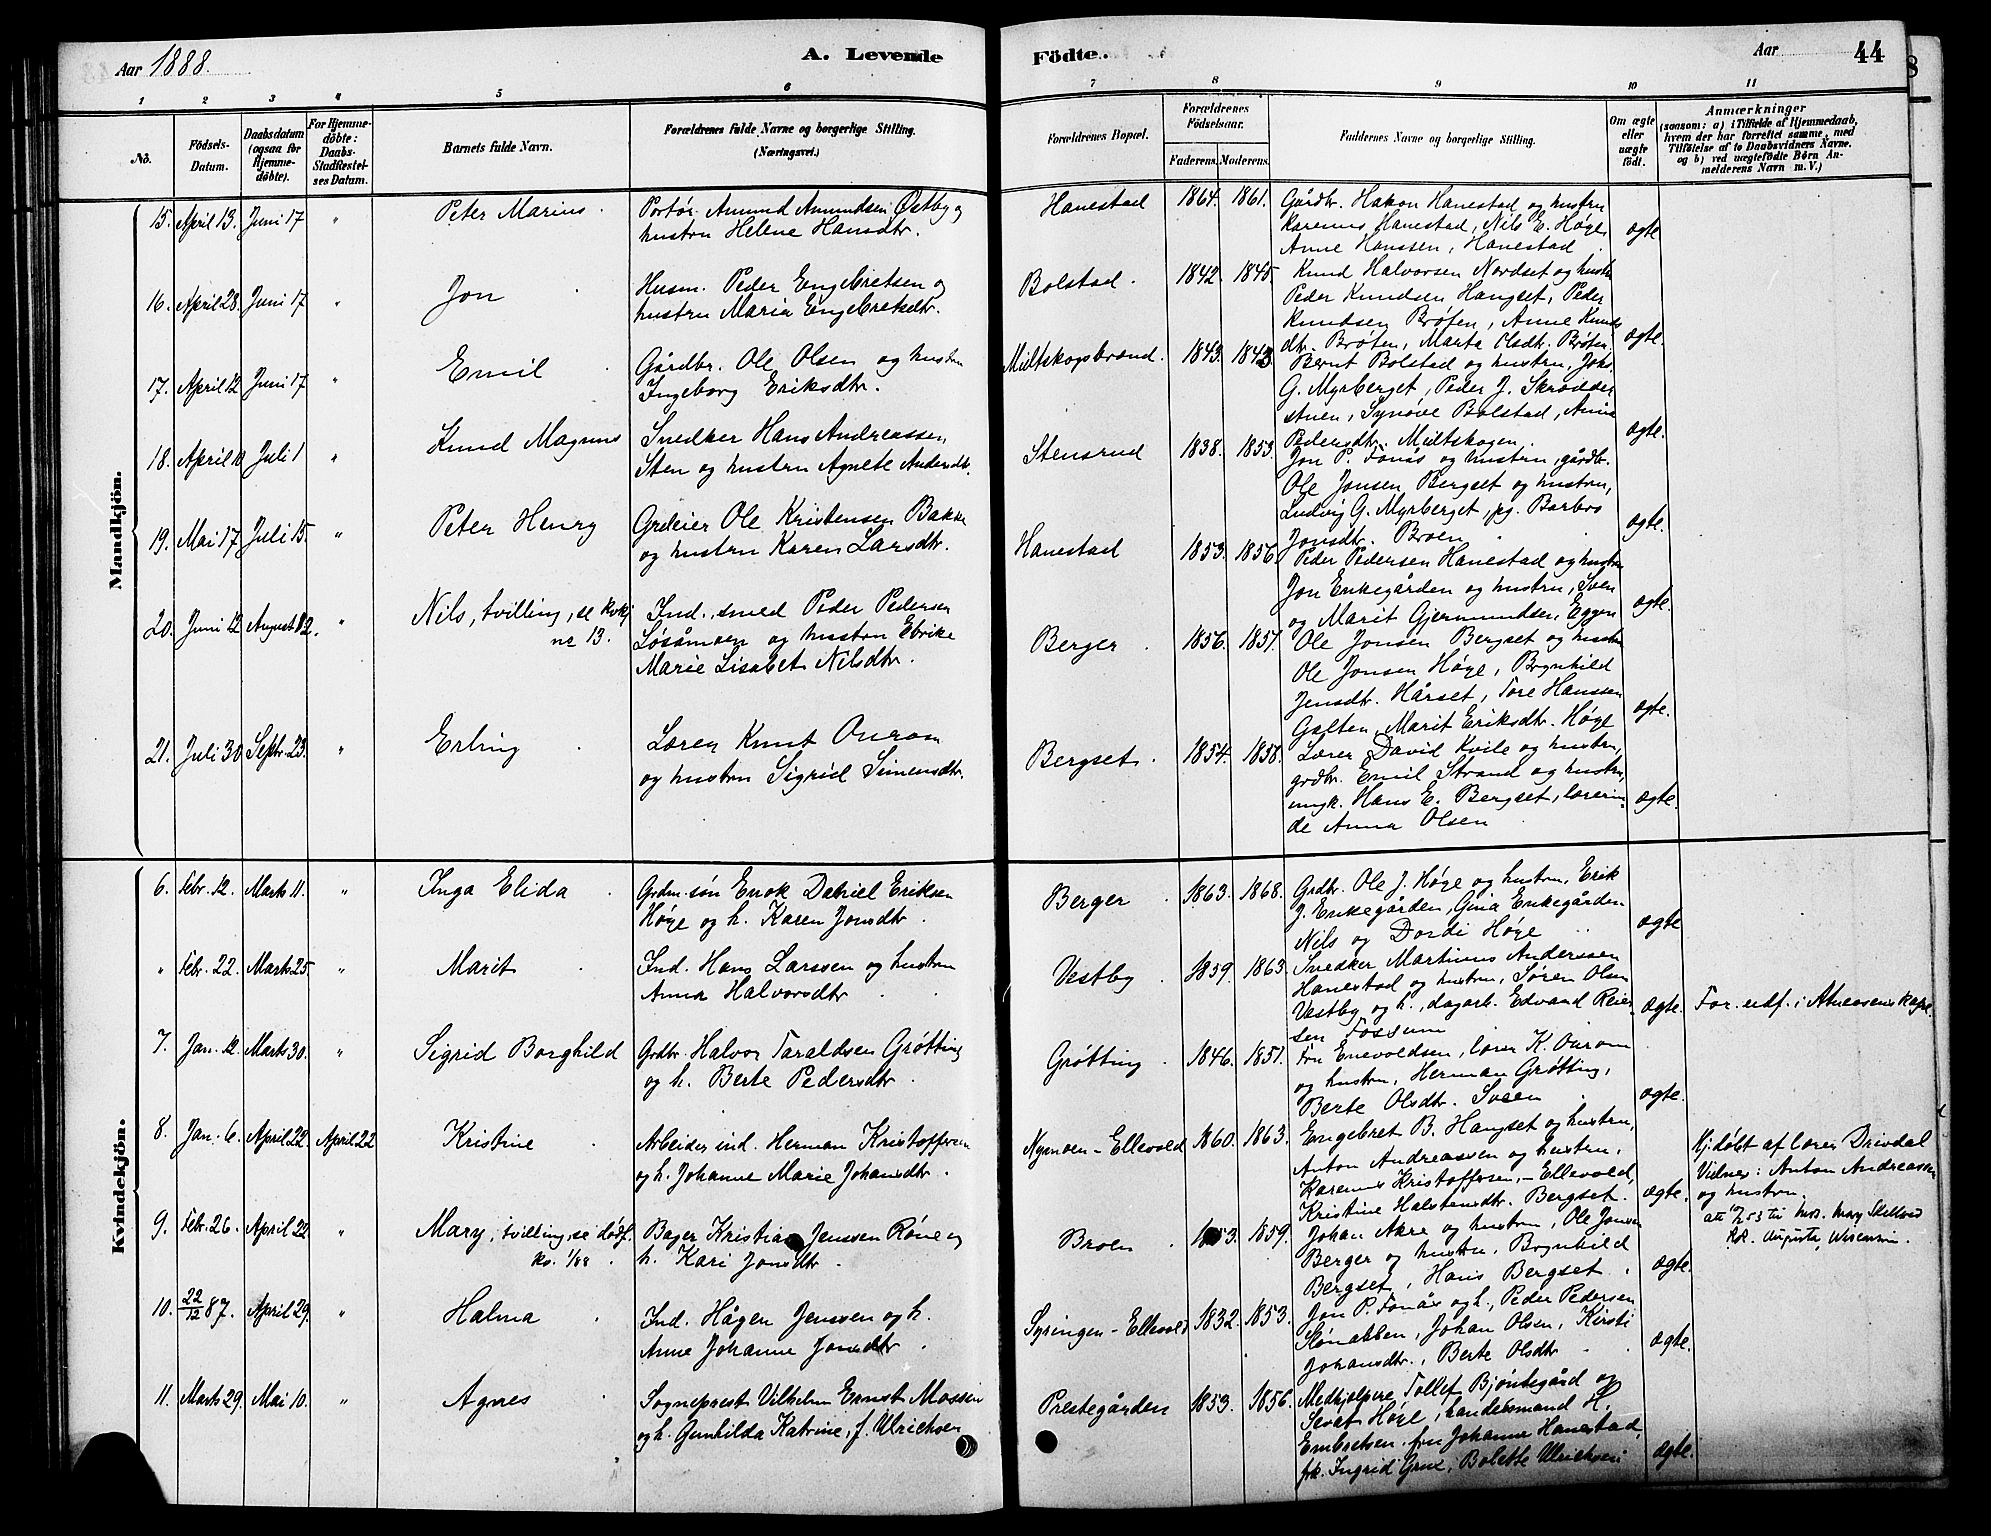 Aar 1888.
A. Levende
Födte.
Aar
44
1 2 3 4 5 6 7 8 9 10 11
No.
Födsels-
Datum.
Daabsdatum
(ogsaa for
Hjemme-
döbte).
For Hjemme-
döbte:
Daabs-
Stadfæstel-
ses Datum.
Barnets fulde Navn.
Forældrenes fulde Navne og borgerlige Stilling.
(Næringsvei.)
Forældrenes Bopæl.
Forældrenes
Födselsaar.
Faderens. Moderens.
Faddernes Navne og borgerlige Stilling.
Om ægte
eller
uægte
födt.
Anmærkninger
(saasom: a) i Tilfælde af Hjemmedaab,
hvem der har forrettet samme, med
Tilföielse af to Daabsvidners Navne.
og b) ved uægtefödte Börn An-
melderens Navn m. V.)
Mandkjön.
15. April 13. Juni 17 " Peter Marius.
Portør Amund Amundsen Østby og
hustru Helene Hansdtr.
Hanestad 1864. 1861.
Gårdbr. Hakon Hanestad og hustru
Karenus Hanestad, Nils E. Høge,
Anne Hanssen, Hanestad
ægte
16. April 28. Juni 17 " Jon
Husm. Peder Engebretsen og
hustru Maria Engebretsdtr.
Bolstad. 1842. 1845.
Knud Halvorsen Nordset og hustru
Peder Knudsen Hangset, Peder
Knudsen Brøten, Anne Knuds
dtr. Brøten, Marta Olsdtr. Brøten
ægte.
17. April 12 Juni 17 " Emil
Gårdbr. Ole Olsen og hustru
Ingeborg Eriksdtr.
Midtskogsbrænd. 1843.
Bernt Bolstad og hustru, Johs.
G. Myrberget, Peder J. Skrædder
stuen, Synøve Bolstad, Anne
Pedersdtr. Midtskogen.
ægte.
18. April Juli 1 " Knud Magnus
Snedker Hans Andreassen
Sten og hustru Agnete Andersdtr.
Stensrud 1838. 1853.
Jon P. Fonås og hustru, gårdbr.
Ole Jonsen Bergset og hustru,
Ludvig G. Myrberget, pg. Barbro
Jonsdtr. Broen
ægte.
19. Mai 17 Juli 15. " Peter Henry
Grdeier Ole Kristensen Bakke
og hustru Karen Larsdtr.
Hanestad 1853. 1856.
Peder Pedersen Hanestad og hustru
Jon Enkegården og hustru, Sven
og Marit Gjermundsen, Eggen
ægte.
20. Juni 12 August 12. " Nils, tvilling, se kvkj
no 13.
Ind., smed Peder Pedersen
Løsåmoen og hustru Elrike
Marie Lisabet Nilsdtr.
Berger 1856. 1857.
Ole Jonsen Bergset og hustru
Ole Jonsen Høge, Brynhild
Jensdtr. Hårset, Tore Hanssen
Galten, Marit Eriksdtr. Høge
ægte.
21. Juli 30. Septbr. 23. " Erling
Lærer Knut Aurom
og hustru Sigrid Simensdtr.
Bergset. 1854. 1858.
Lærer David Kvile og hustru,
grdbr. Emil Strand og hustru,
ungk. Hans E. Bergset, lærerin
de Anna Olsen
ægte.
Kvindekjön.
6. Febr. 12. Marts 11. " Inga Elida
Grdm. søn Enok Daniel Eriksen
Høge og h. Karen Jonsdtr.
Berger 1863. 1868.
Grdbr. Ole J. Høge og hustru, Erik
J. Enkegården, Gina Enkegården
Nils og Dordi Høge
ægte
" Febr. 22. Marts 25. " Marit
Ind. Hans Larssen og hustru
Anna Halvorsdtr.
Vestby 1859. 1863.
Snedker Martinus Anderssen
Hanestad og hustru, Søren Olsen
Vestby og h., dagarb. Edvard Reier-
sen Fossum
ægte.
For. udf. i Atneosens kapel
7. Jan. 12. Marts 30. " Sigrid Borghild
Grdbr. Halvor Taraldsen Grøtting
og h. Berte Pedersdtr.
Grøtting 1846. 1851.
Fru Enevoldsen, lærer K. Aurom
og hustru, Herman Grøtting,
Berte Olsdtr. Sveen
ægte.
8. Jan. 6. April 22. April 22 Kristine
Arbeider ind. Herman Kristoffersen
og h. Johanne Marie Johansdtr.
Nymoen-Ellevold 1860. 1863.
Engebret B. Hangset og hustru,
Anton Andreassen og hustru,
Karenus Kristoffersen, - Ellevold,
Kristine Halstensdtr. Bergset.
ægte.
Hj.døbt af lærer Drivdal
Vidner: Anton Andreassen
og hustru.
9. Febr. 26. April 22 " Mary, tvilling, se dødf.
kv. 1/88.
Bager Kristian Jenssen Røne og
h. Kari Jonsdtr.
Broen 1853. 1859.
Johan Akre og hustru, Ole Jonsen
Berger og hustru, Brynhild
Bergset, Hans Bergset
ægte.
att 53 til Mrs. Mary
Augusta, Wisconsin.
10. 22/12 87. April 29. " Halma
Ind. Hågen Jenssen og h.
Anne Johanne Jonsdtr.
Syringen-Ellevold 1832. 1853.
Jon P. Fonås og h., Peder Pedersen
Stønabben, Johan Olsen, Kirsti
Johansdtr., Berte Olsdtr
ægte.
11. Marts 29. Mai 10. " Agnes
Sogneprest Vilhelm Ernst Mossin
og h. Gunhilda Katrine, f. Ulrichsen
Prestegården 1853. 1856.
Medhjelpere Tollef Bjøntegård og
Sevat Høge, handelsmand H.
Embretsen, fru Johanne Hanestad,
frk. Ingrid Grue, Bolette Ulrichsen
ægte.